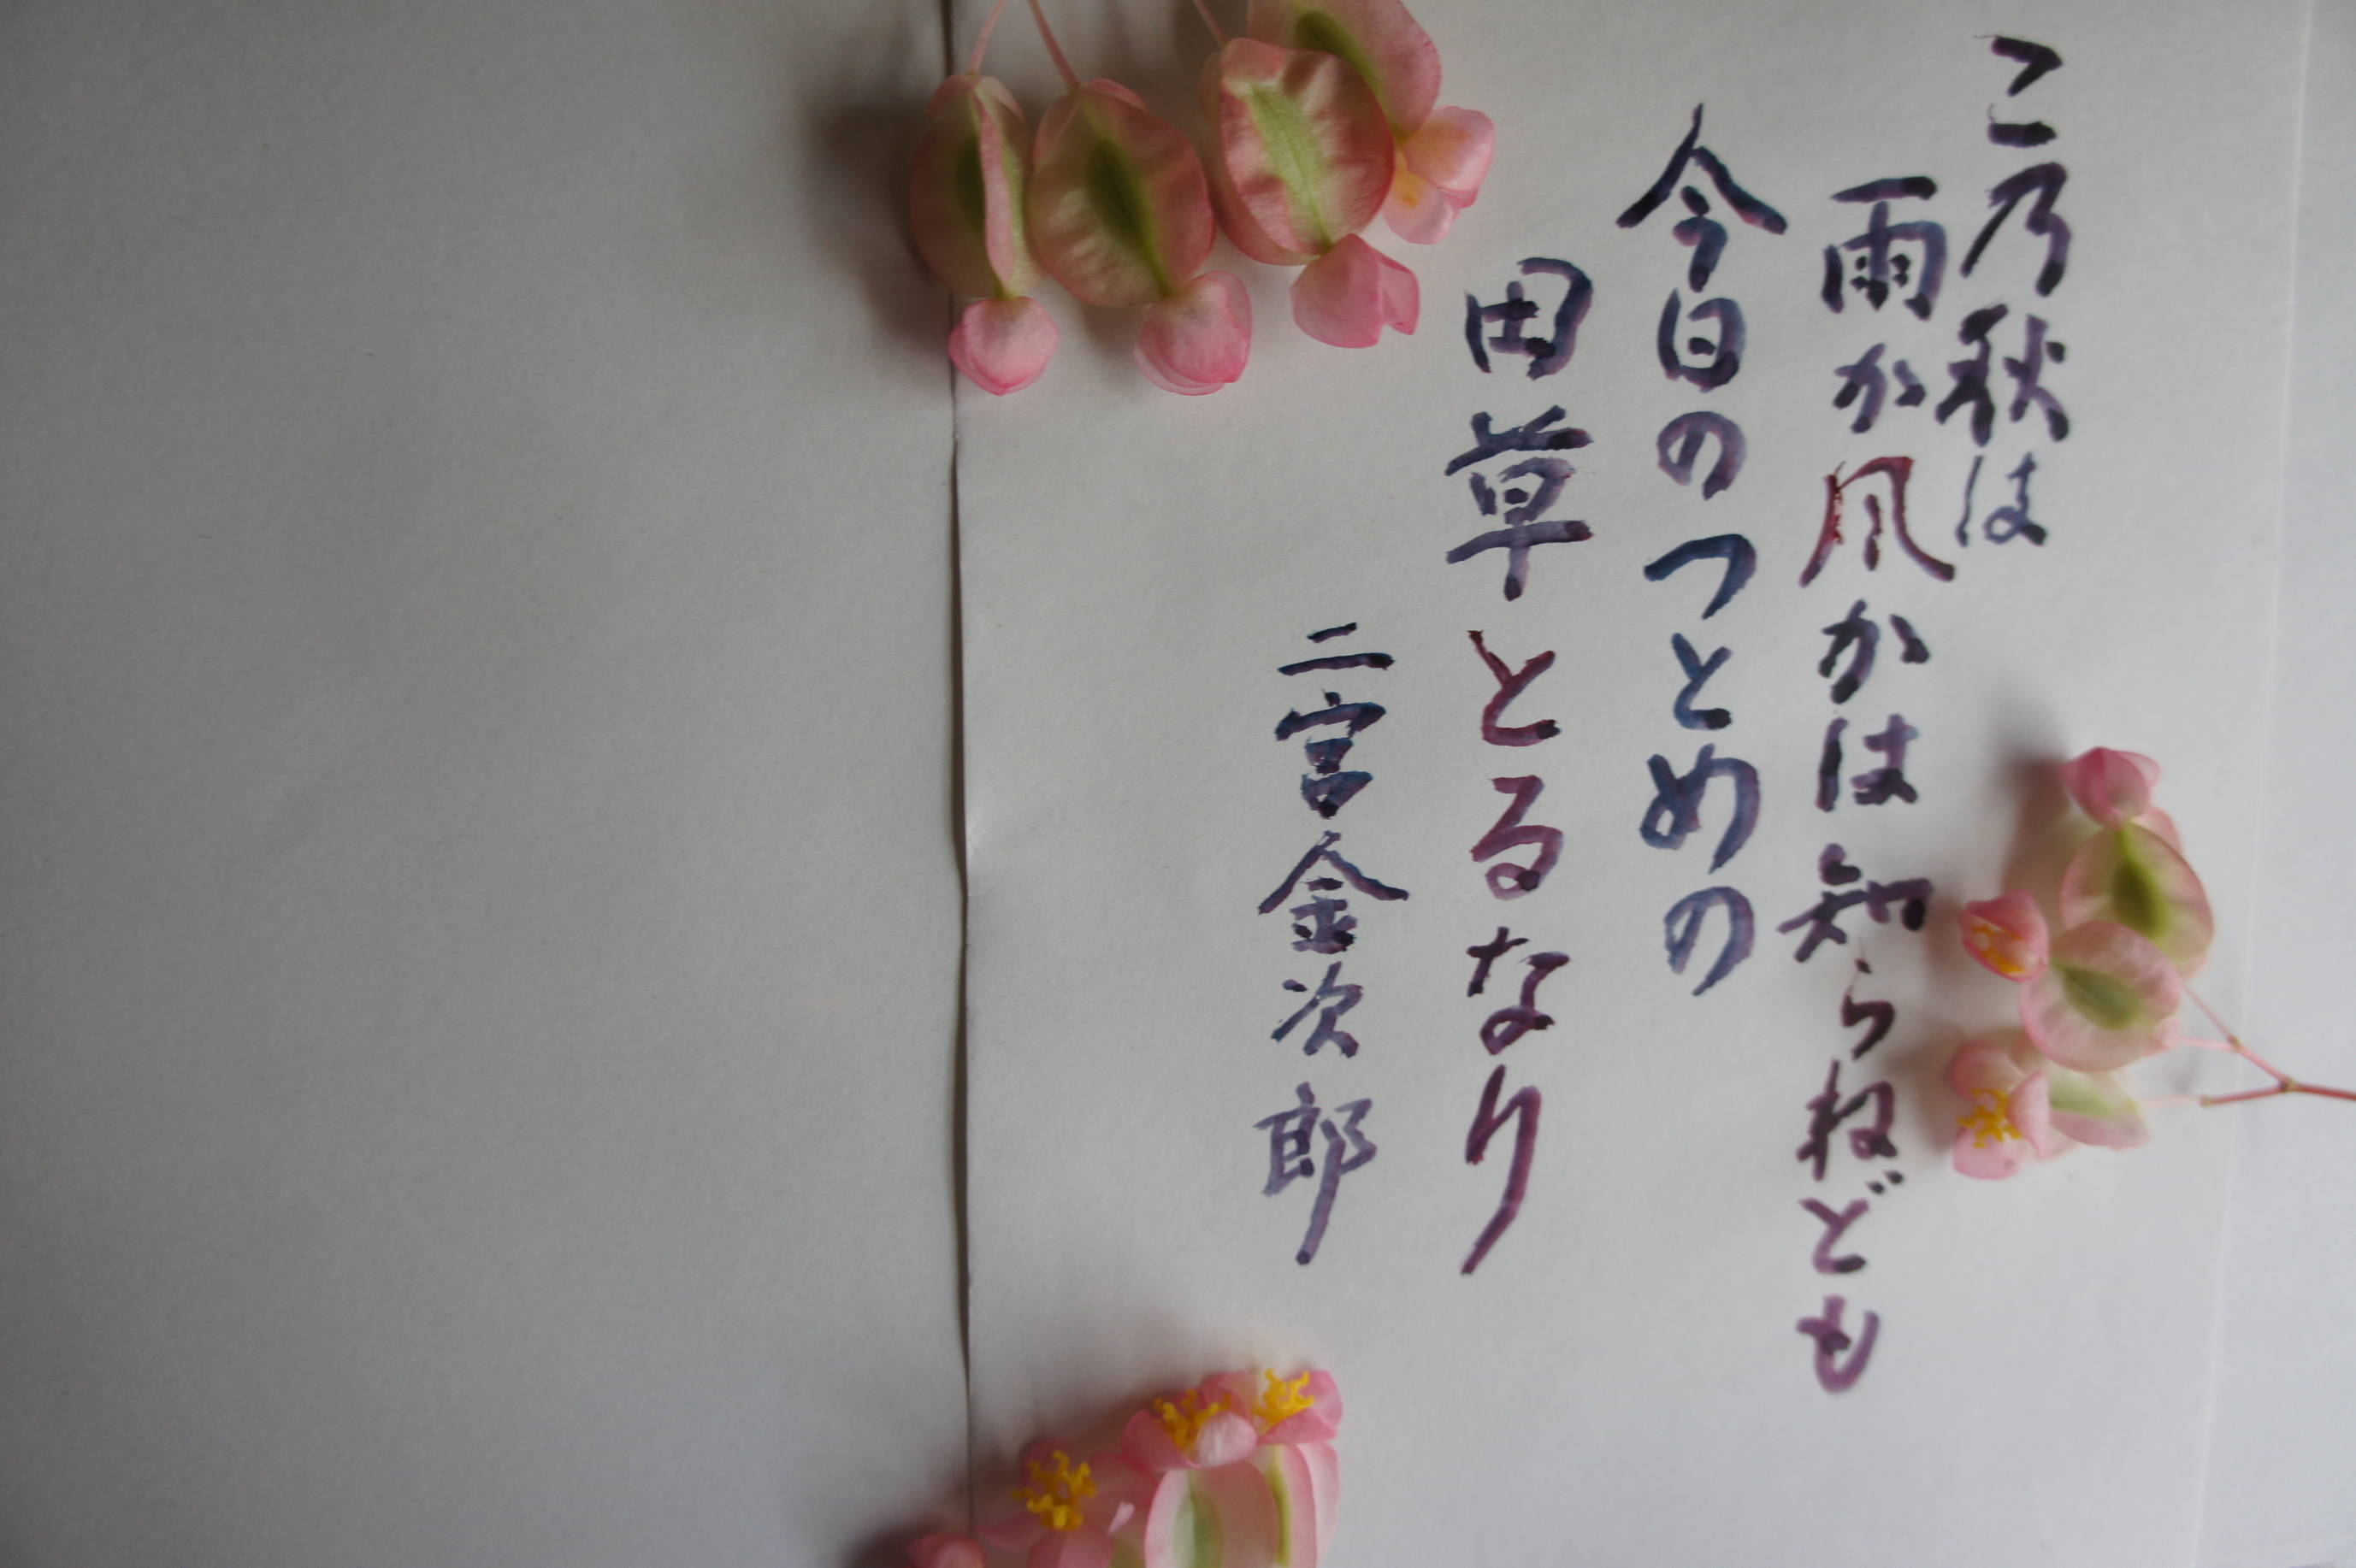 この秋は
雨か風かは知らねども
今日のつとめの
田草とるなり
二宮金次郎